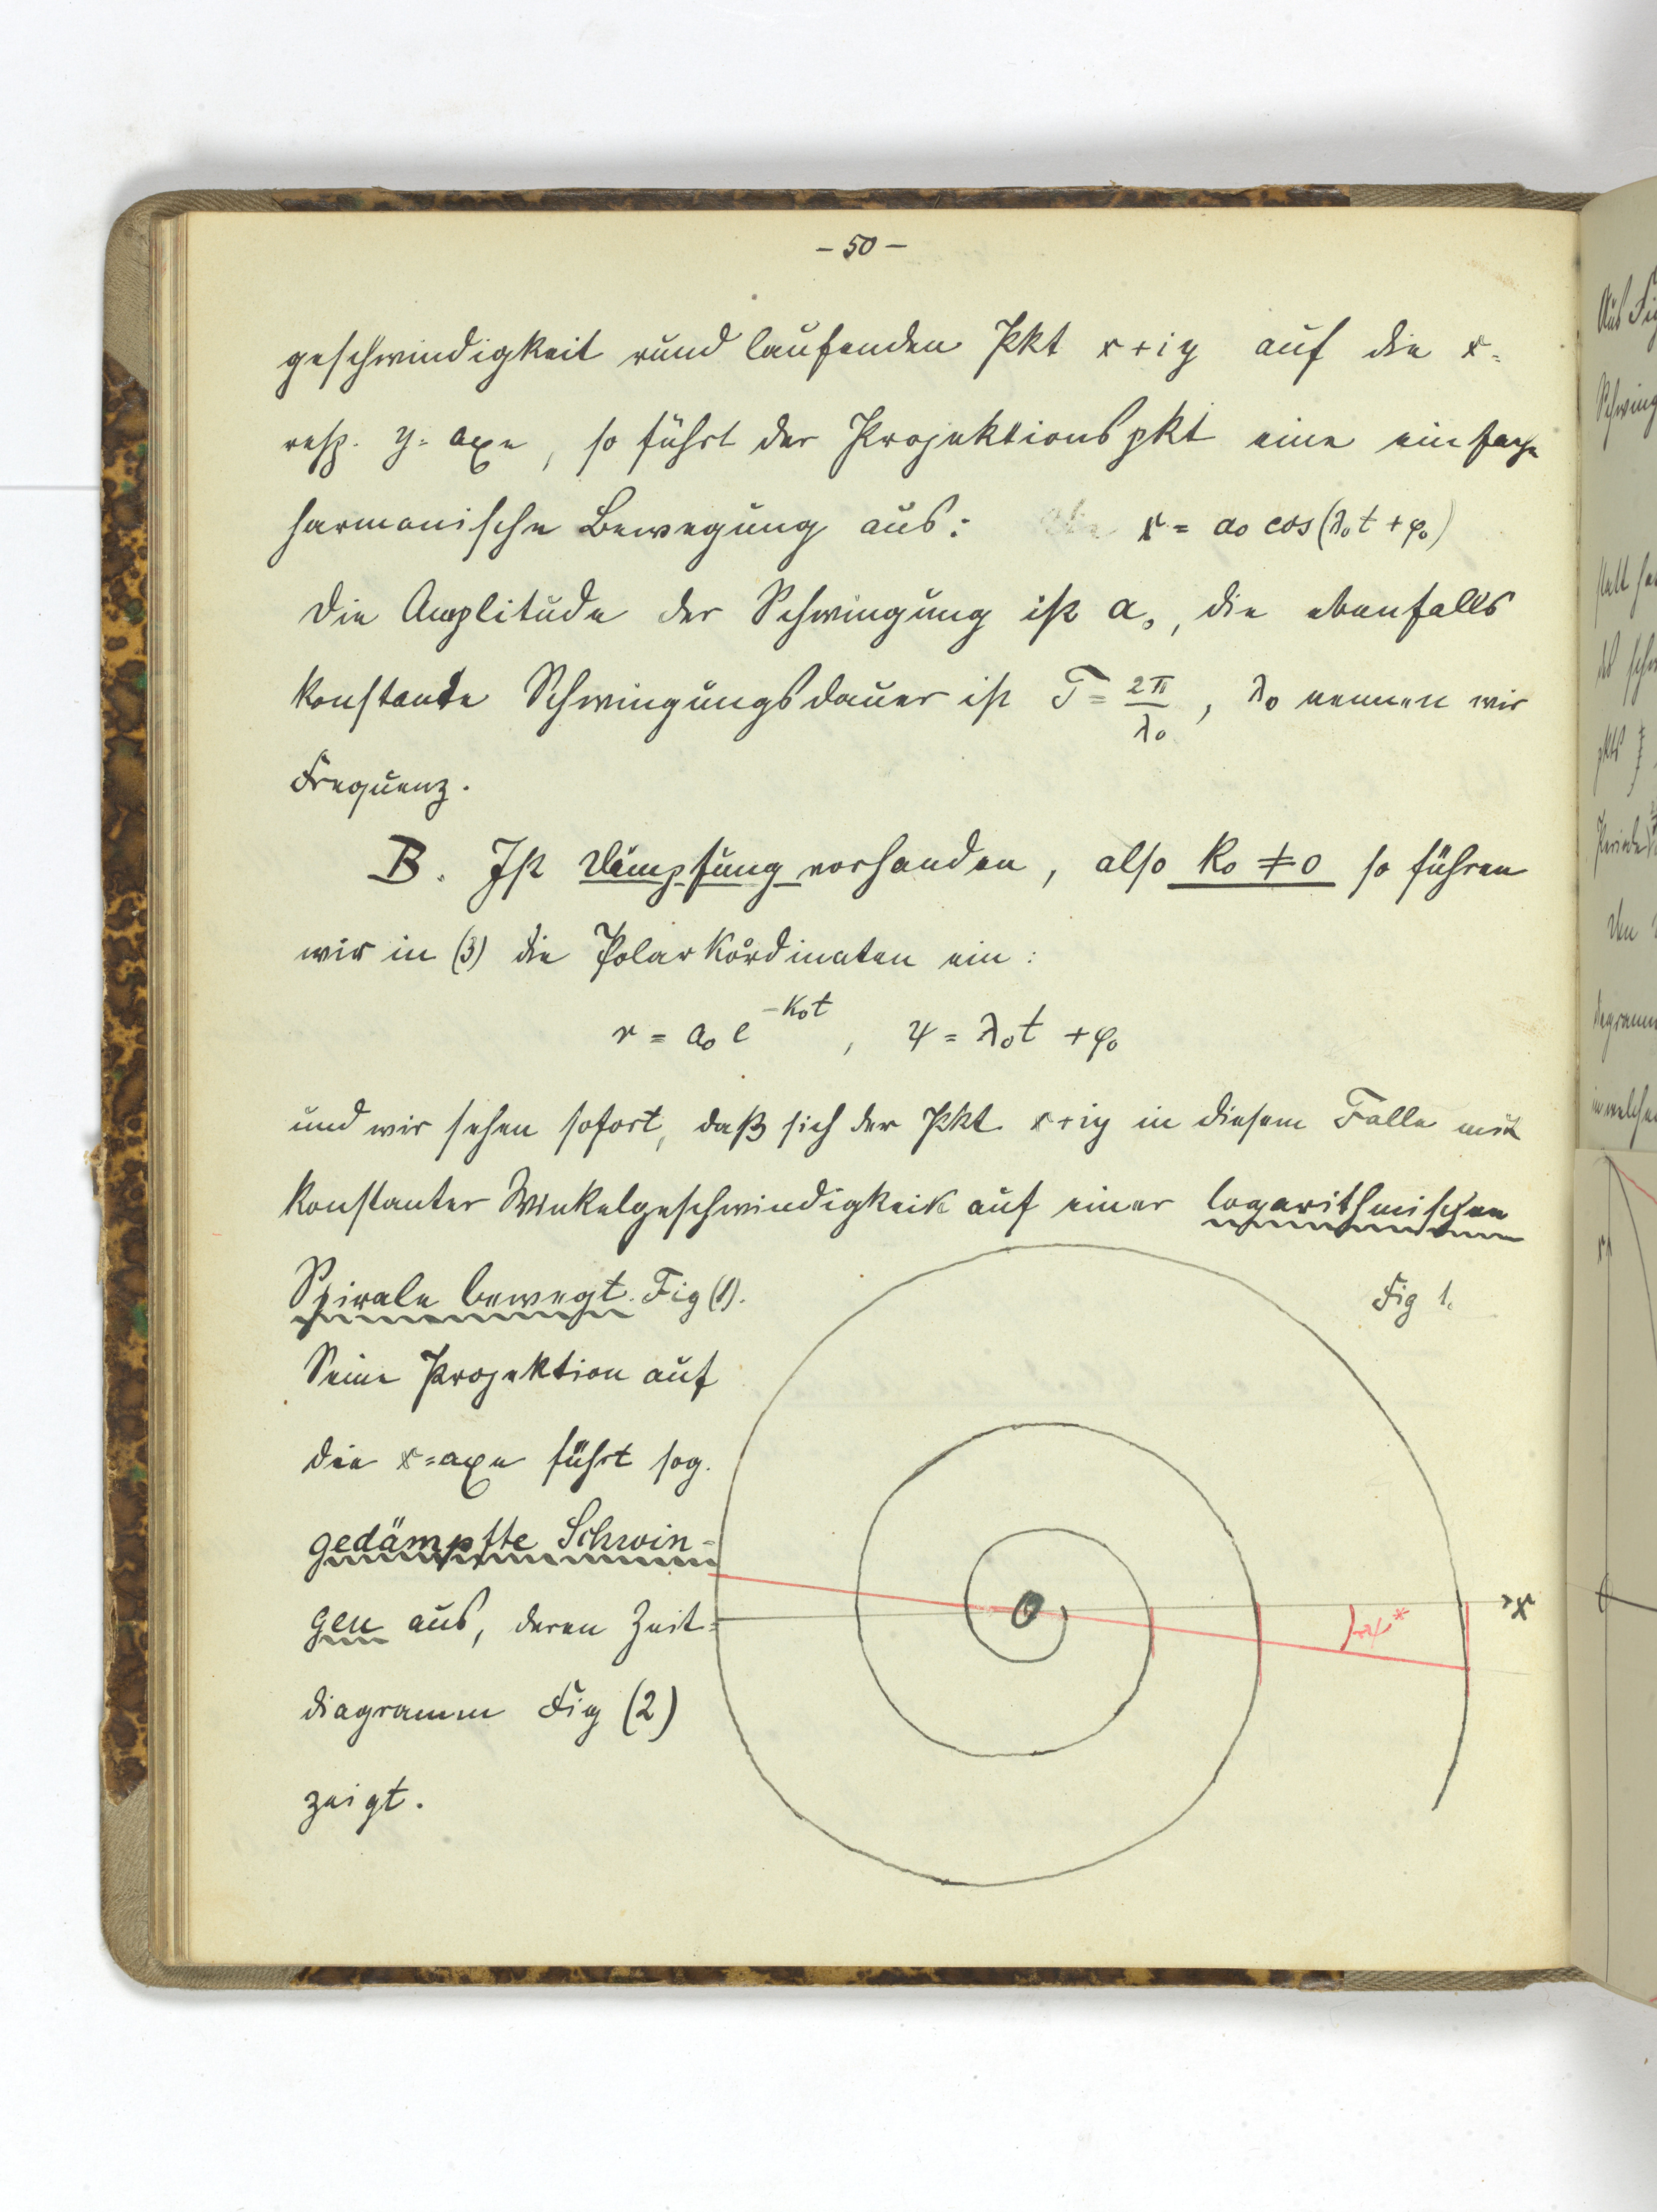 - 50 -
geschwindigkeit rund laufenden Pkt x+iy auf die x-
resp. y-axe, so führt der Projektionspkt eine einfache
harmonische Bewegung aus: x = a₀ cos(λ₀t + φ₀)
Die Amplitude der Schwingung ist a₀, die ebenfalls
konstante Schwingungsdauer ist T = 2π/λ₀, λ₀ nennen wir
Frequenz.
B. Ist Dämpfung vorhanden, also k₀ ≠ 0 so führen
wir in (3) die Polarkoordinaten ein:
r = a₀ e^(-k₀t), ψ = λ₀t + φ₀
und wir sehen sofort, daß sich der Pkt x+iy in diesem Falle mit
konstanter Winkelgeschwindigkeit auf einer logarithmischen
Spirale bewegt. Fig (1).
Fig 1.
Seine Projektion auf
die x-axe führt sog.
gedämpfte Schwin-
gen aus, deren Zeit-
diagramm Fig (2)
zeigt.
O
x
ψ*
Aus Fi
Schwing